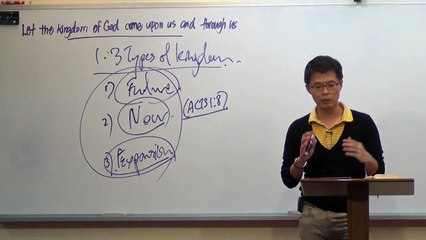 Let the kingdom of God come upon us and through us
1. 3 Types of kingdom.
1) Future
2) Now (ACTS 1:8)
3) Expansion